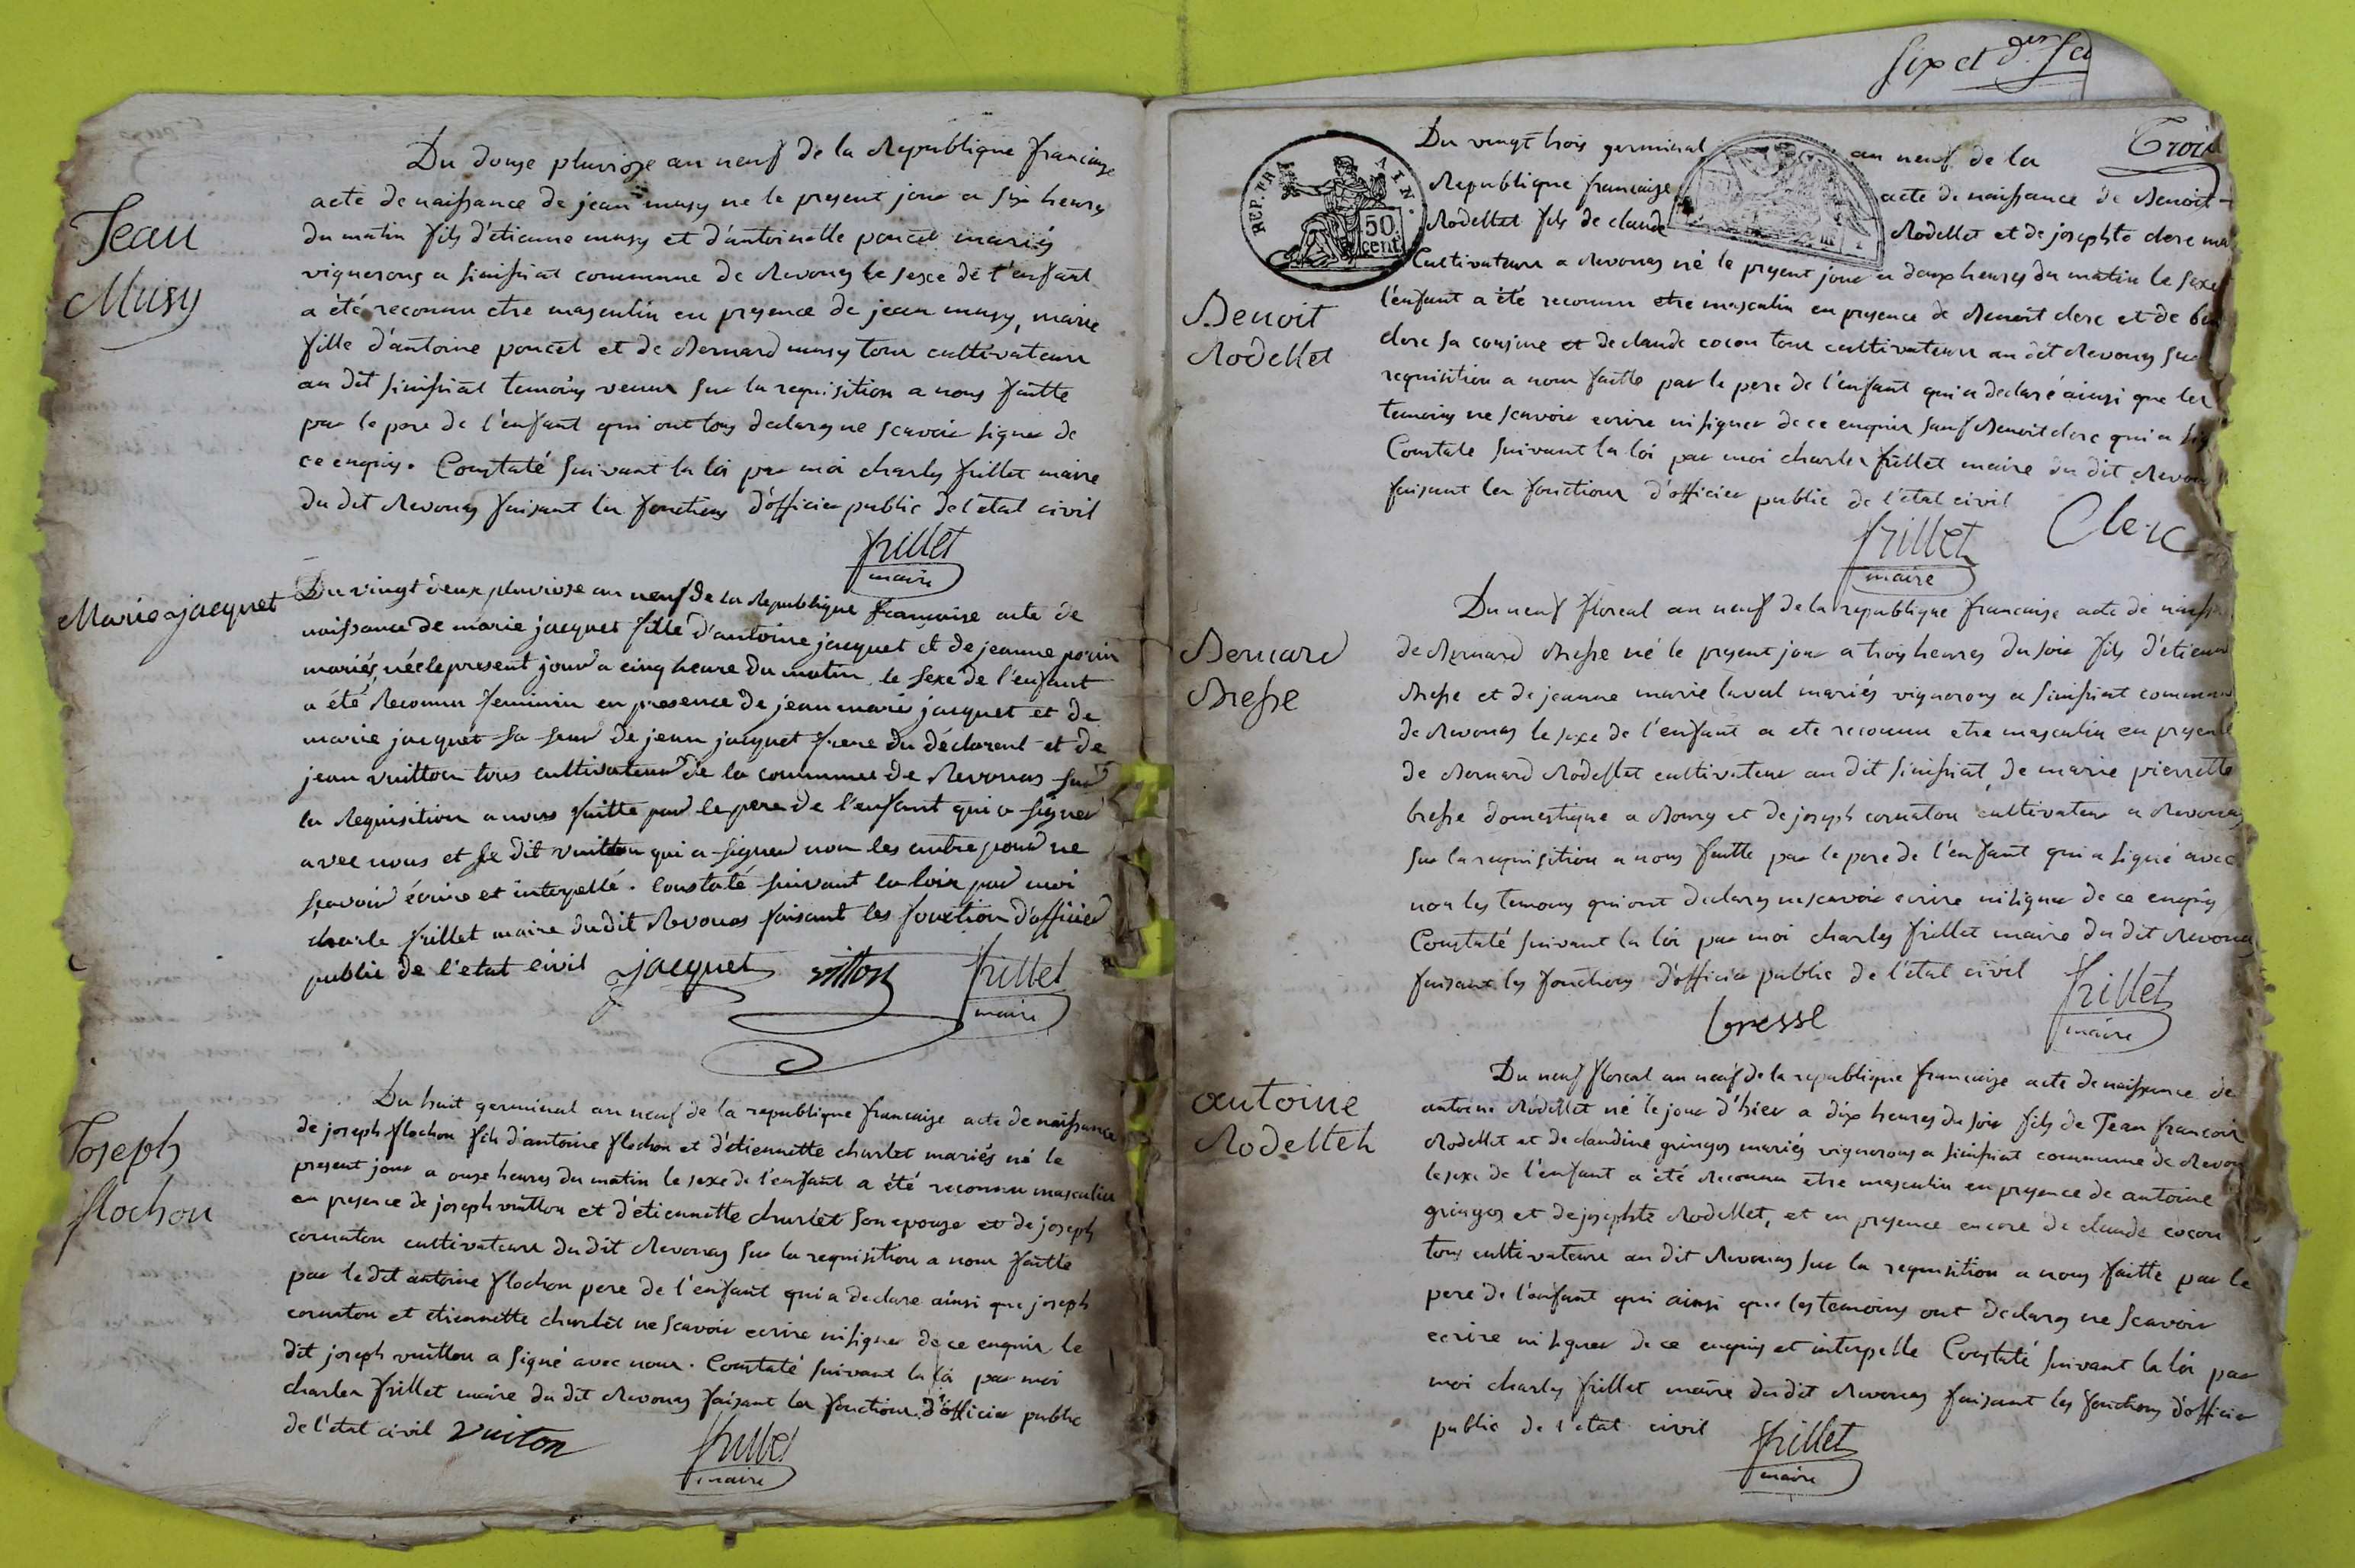 Six et der
Jean
Musy
Du douze pluviose an neuf de la Republique francaise
acte de naissance de jean musy ne le present jour a six heures
du matin fils d'etienne musy et d'antoinette poncet mariés
vignerons a simssiat commune de Revonas le sexe de l'enfant
a été reconnu etre masculin en presence de jean musy, marie
fille d'antoine poncet et de Bernard musy tous cultivateurs
au dit simssiat temoins venus sur la requisition a nous faitte
par le pere de l'enfant qui ont tous declares ne scavoir signer de
ce enquis. Constaté suivant la loi par moi charles frillet maire
du dit Revonas faisant les fonctions d'officier public de l'etat civil
frillet
maire
Marie jacquet
Du vingt deux pluviose an neuf de la Republique francaise acte de
naissance de marie jacquet fille d'antoine jacquet et de jeanne perrin
mariés, née le present jour a cinq heure du matin, le sexe de l'enfant
a été Reconnu feminin en presence de jean marie jacquet et de
marie jacquet sa seur de jean jacquet frere du déclarent et de
jean vuitton tous cultivateur de la commune de Revonas sur
la Requisition a nous faitte par le pere de l'enfant qui a signer
avec nous et le dit vuitton qui a signer non les autre pour ne
sçavoir écrire et interpellé. Constaté suivant la loix par moi
charle frillet maire du dit Revonas faisant les fonction d'officier
public de l'etat civil jacquet vitton frillet
maire
Joseph
flochon
Du huit germinal an neuf de la republique francaise acte de naissance
de joseph flochon fils d'antoine flochon et d'etiennette charlet mariés né le
present jour a onze heures du matin le sexe de l'enfant a été reconnu masculin
en presence de joseph vuitton et d'etiennette charlet son epouse et de joseph
cornaton cultivateurs du dit Revonas sur la requisition a nous faitte
par le dit antoine flochon pere de l'enfant qui a declare ainsi que joseph
cornaton et etiennette charlet ne scavoir ecrire ni signer de ce enquis le
dit joseph vuitton a signé avec nous. Constaté suivant la loi par moi
charles frillet maire du dit Revonas faisant les fonctions d'officier public
de l'etat civil vuiton frillet
maire
Trois
REP. FRA AIN.
50
cent
Benoit
Rodellet
Du vingt trois germinal an neuf de la
Republique francaise acte de naissance de Benoit
Rodellet fils de claude Rodellet et de josephte clerc
Cultivateurs a Revonas né le present jour a deux heures du matin le sexe
l'enfant a été reconnu etre masculin en presence de Benoit clerc et de
clerc sa cousine et de claude cocon tous cultivateurs au dit Revonas sur
requisition a nous faitte par le pere de l'enfant qui a declaré ainsi que les
temoins ne scavoir ecrire ni signer de ce enquis sauf Benoit clerc qui a
Constate suivant la loi par moi charles frillet maire du dit Revonas
faisant les fonctions d'officier public de l'etat civil
frillet Clerc
maire
Bernard
Bresse
Du neuf floreal an neuf de la republique francaise acte de
de Bernard Bresse né le present jour a trois heures du soir fils d'etienne
Bresse et de jeanne marie laval mariés vignerons a simssiat commune
de Revonas le sexe de l'enfant a ete reconnu etre masculin en presence
de Bernard Rodellet cultivateur au dit simssiat, de marie pierrette
bresse domestique a Bourg et de joseph cornaton cultivateur a Revonas
sur la requisition a nous faitte par le pere de l'enfant qui a signé avec
nou les temoins qui ont declares ne scavoir ecrire ni signer de ce enquis
Constaté suivant la loi par moi charles frillet maire du dit Revonas
faisant les fonctions d'officier public de l'etat civil
bresse frillet
maire
antoine
Rodellet
Du neuf floreal an neuf de la republique francaise acte de naissance de
antoine Rodellet né le jour d'hier a dix heures du soir fils de Jean francois
Rodellet et de claudine gringos mariés vignerons a simssiat commune de Revonas
le sexe de l'enfant a été Reconnu etre masculin en presence de antoine
gringos et de josephte Rodellet, et en presence encore de claude cocon
tous cultivateurs au dit Revonas sur la requisition a nous faitte par le
pere de l'enfant qui ainsi que les temoins ont declares ne scavoir
ecrire ni signer de ce enquis et interpelle Constaté suivant la loi par
moi charles frillet maire du dit Revonas faisant les fonctions d'officier
public de l'etat civil frillet
maire